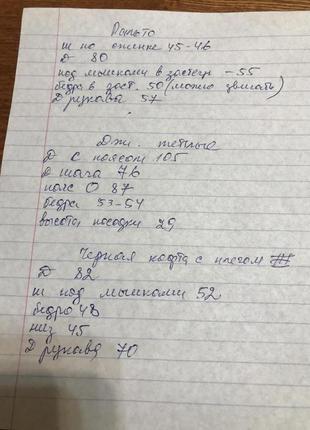 Пальто
ш по спинке 45-46
Д 80
под мышками в застегн - 55
бедра в заст. 50 (можно
Д рукава 57
Дж. теплые
Д с поясом 105
Д шага 76
пояс О 87
бедра 53-54
высота посадки 29
Черная кофта с
Д 82
ш под мышками 52
бедра 48
низ 45
Д рукава 70